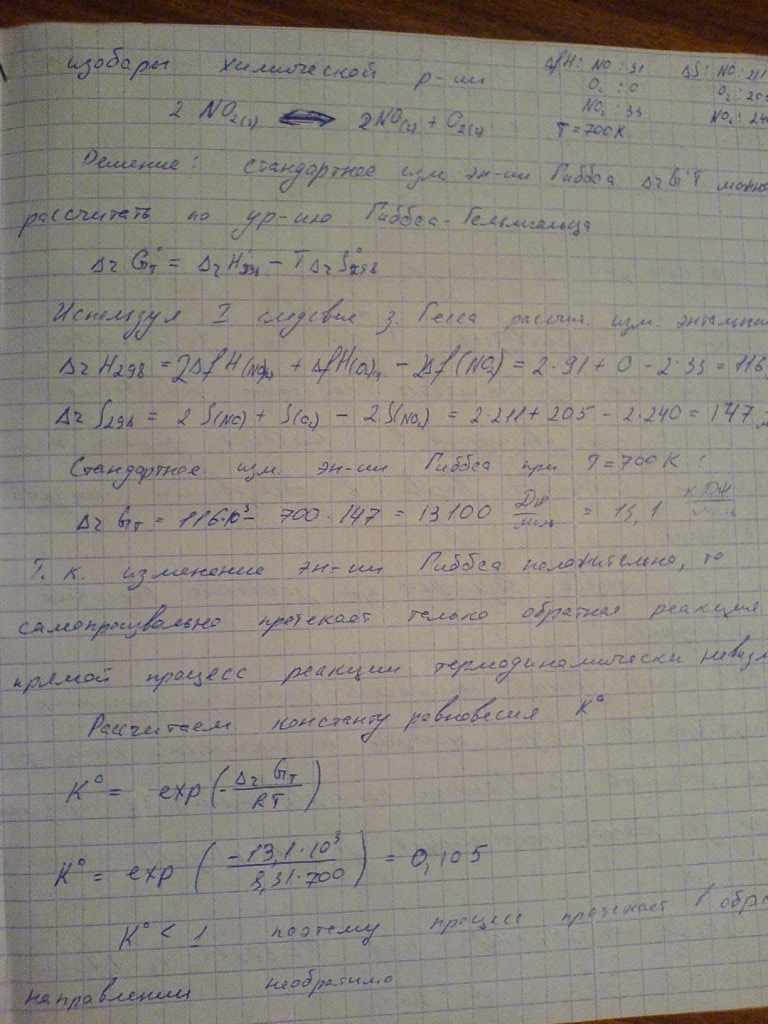 изобары химической р-ии
ΔfH: NO: 91 ΔS: NO: 211
O2: 0 O2: 205
NO2: 33 NO2: 240
T = 700 K
2 NO2(г) ⇔ 2NO(г) + O2(г)
Решение: стандартное изм. эн-ии Гиббса ΔrG°T можно
рассчитать по ур-ию Гиббса-Гельмгольца
ΔrG°T = ΔrH°298 - TΔrS°298
Используя I следствие з. Гесса рассчит. изм. энтальпии
ΔrH298 = 2ΔfH(NO)г + ΔfH(O2)г - 2Δf(NO2) = 2·91 + 0 - 2·33 = 116
ΔrS298 = 2S(NO) + S(O2) - 2S(NO2) = 2·211 + 205 - 2·240 = 147
Стандартное изм. эн-ии Гиббса при T = 700 K:
ΔrGT = 116·10³ - 700·147 = 13100 Дж/моль = 13,1 кДж/моль
Т. к. изменение эн-ии Гиббса положительно, то
самопроизвольно протекает только обратная реакция
прямой процесс реакции термодинамически невозм
Рассчитаем константу равновесия K°
K° = exp(-ΔrGT/RT)
K° = exp(-13,1·10³/8,31·700) = 0,105
K° < 1 поэтому процесс протекает в обра
направлении необратимо